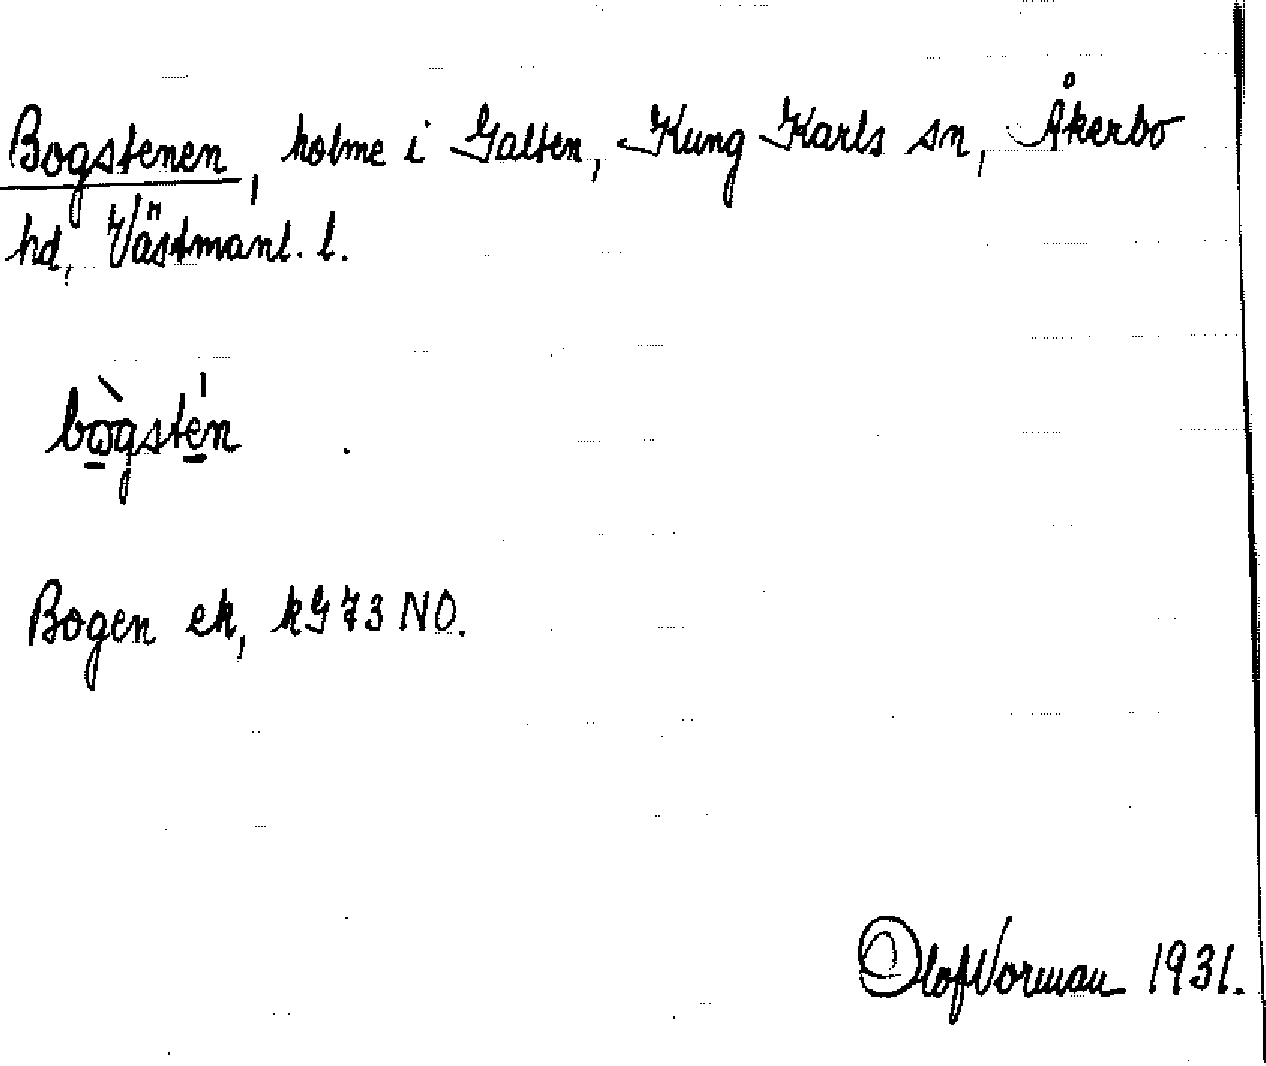 Bogstenen, holme i Galten, Kung Karls sn, Åkerbo
hd, Västmanl. l.
bògsté̱n
Bogen ek, kG 73 NO.
Olof Vorman 1931.